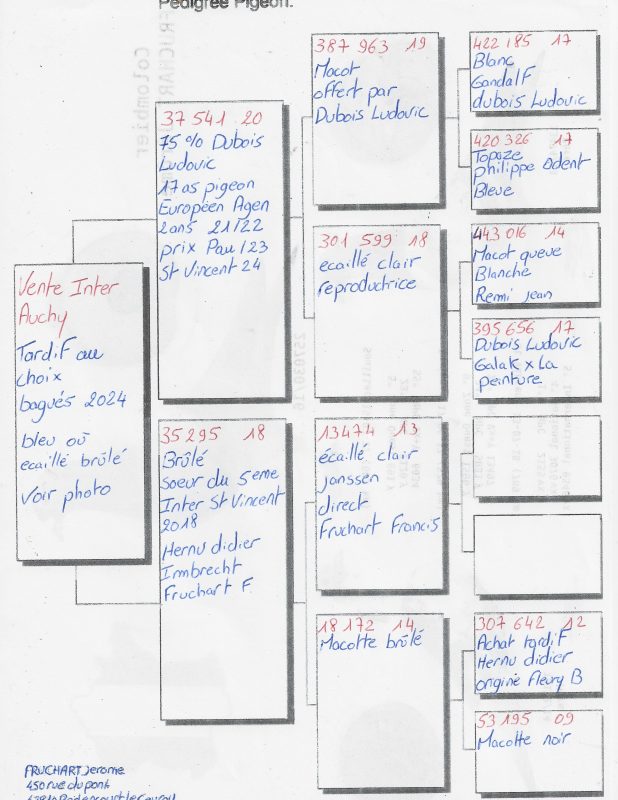 Pedigree Pigeon.
Vente Inter
Auchy
Tardif au
choix
bagués 2024
bleu où
ecaillé brûlé
Voir photo
37 541 20
75 % Dubois
Ludovic
17 as pigeon
Européen Agen
2ans 21/22
prix Pau 123
St Vincent 24
35295 18
Brûlé
Soeur du 5eme
Inter St Vincent
2018
Hernu didier
Imbrecht
Fruchart F.
387 963 19
Macot
offert par
Dubois Ludovic
301 599 18
ecaillé clair
reproductrice
13474 13
écaillé clair
janssen
direct
Fruchart Francis
18 172 14
Macotte brûlé
422 185 17
Blanc
Gandalf
dubois Ludovic
420 326 17
Topaze
philippe Odent
Bleue
443 016 14
Macot queue
Blanche
Remi jean
395 656 17
Dubois Ludovic
Galak x La
peinture
307 642 12
Achat tardif
Hernu didier
origine fleury B
53 195 09
Macotte noir
FRUCHART Jerome
450 rue du pont